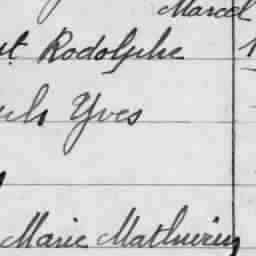 Marcel
Rodolphe
Yves
Marie Mathurin